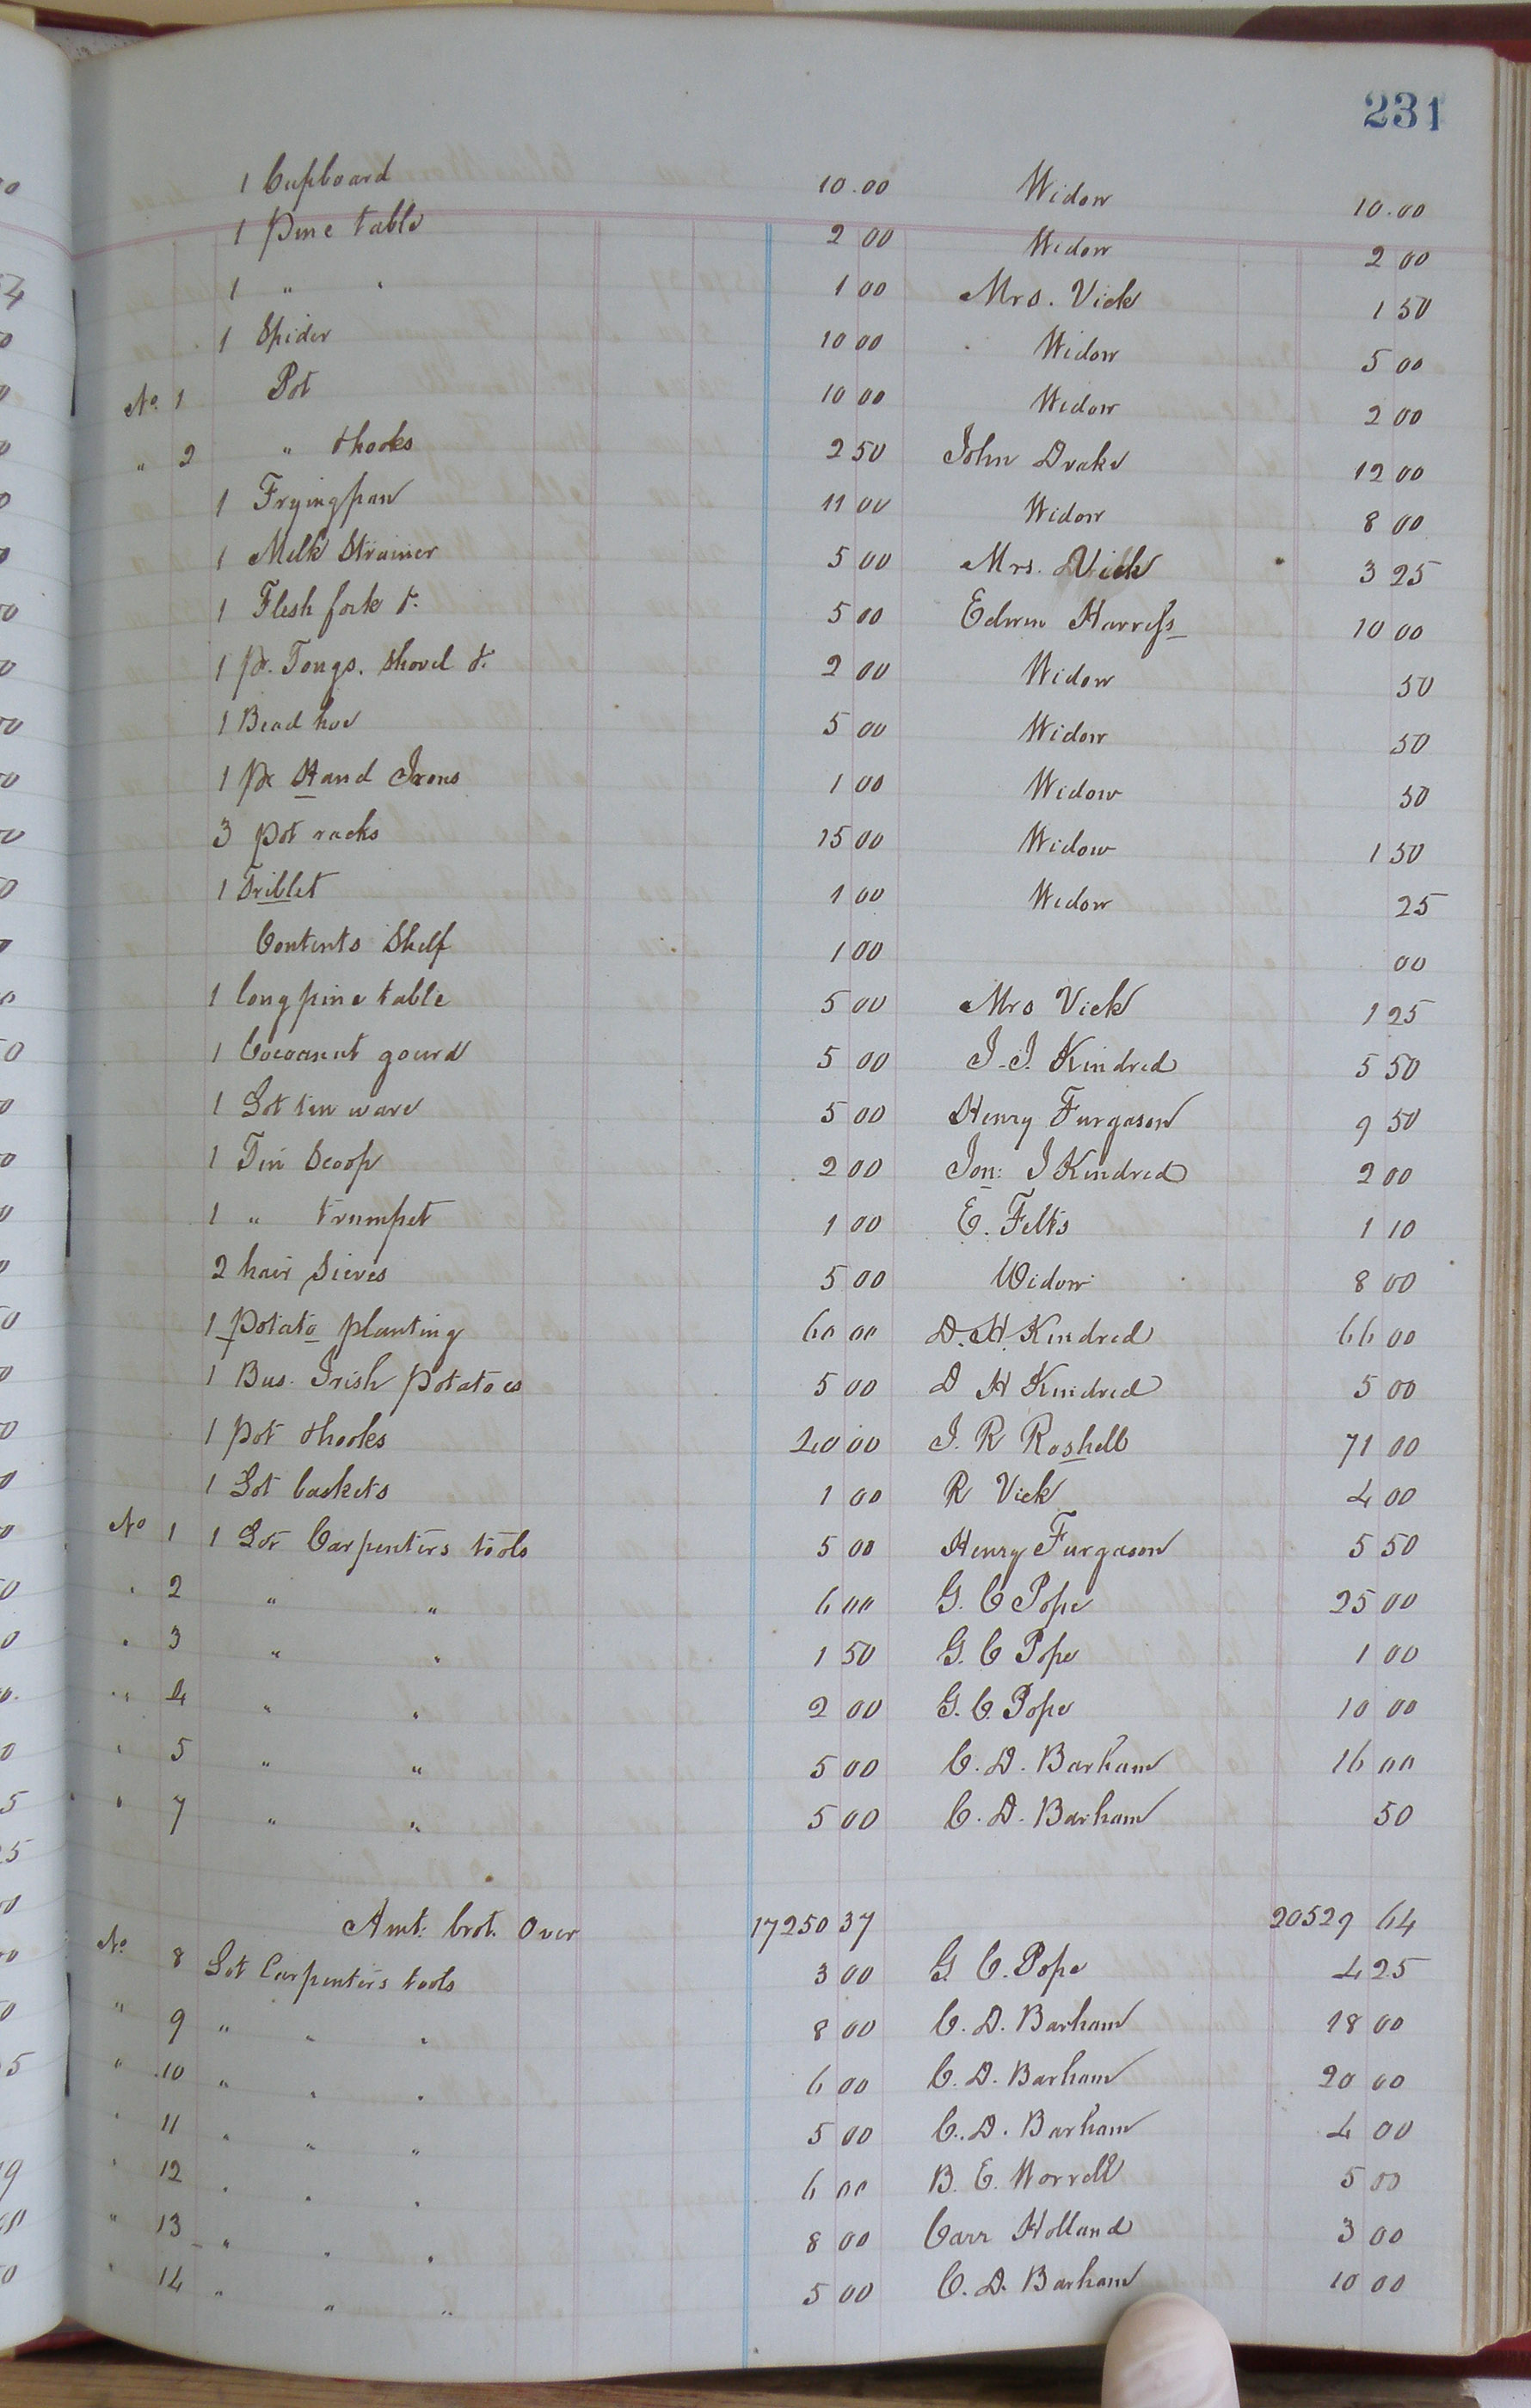 231
1 Cupboard 10.00 Widow 10.00
1 Pine table 2 00 Widow 2 00
1 " " 1 00 Mrs. Vick 1 50
1 Spider 10 00 Widow 5 00
No. 1 Pot 10 00 Widow 2 00
" 2 " & hooks 2 50 John Drake 12 00
1 Fryingpan 11 00 Widow 8 00
1 Milk Strainer 5 00 Mrs. Vick 3 25
1 Flesh fork &. 5 00 Edwin Harriss 10 00
1 pr. Tongs. Shovel &. 2 00 Widow 50
1 Bead hoe 5 00 Widow 50
1 pr Hand Irons 1 00 Widow 50
3 pot racks 15 00 Widow 1 50
1 Triblet 1 00 Widow 25
Contents Shelf 1 00 00
1 long pine table 5 00 Mrs Vick 1 25
1 Cocoanut gourd 5 00 J. J. Kindred 5 50
1 Lot tin ware 5 00 Henry Furgason 9 50
1 Tin Scoop 2 00 Jon: J Kindred 2 00
1 " trumpet 1 00 E. Felts 1 10
2 hair Sieves 5 00 Widow 8 00
1 potato planting 60 00 D. H. Kindred 66 00
1 Bus. Irish potatoes 5 00 D H Kindred 5 00
1 pot & hooks 20 00 J. R Roshell 71 00
1 Lot baskets 1 00 R Vick 4 00
No 1 1 Lot Carpenters tools 5 00 Henry Furgason 5 50
" 2 " " 6 00 G. C Pope 25 00
" 3 " " 1 50 G. C Pope 1 00
" 4 " " 2 00 G. C. Pope 10 00
" 5 " " 5 00 C. D. Barham 16 00
" 7 " " 5 00 C. D. Barham 50
Amt: brot. Over 17250 37 20529 64
No. 8 Lot Carpenters tools 3 00 G. C. Pope 4 25
" 9 " " " 8 00 C. D. Barham 18 00
" 10 " " " 6 00 C. D. Barham 20 00
" 11 " " " 5 00 C. D. Barham 4 00
" 12 " " " 6 00 B. E. Worrell 5 00
" 13 " " " 8 00 Carr Holland 3 00
" 14 " " " 5 00 C. D. Barham 10 00